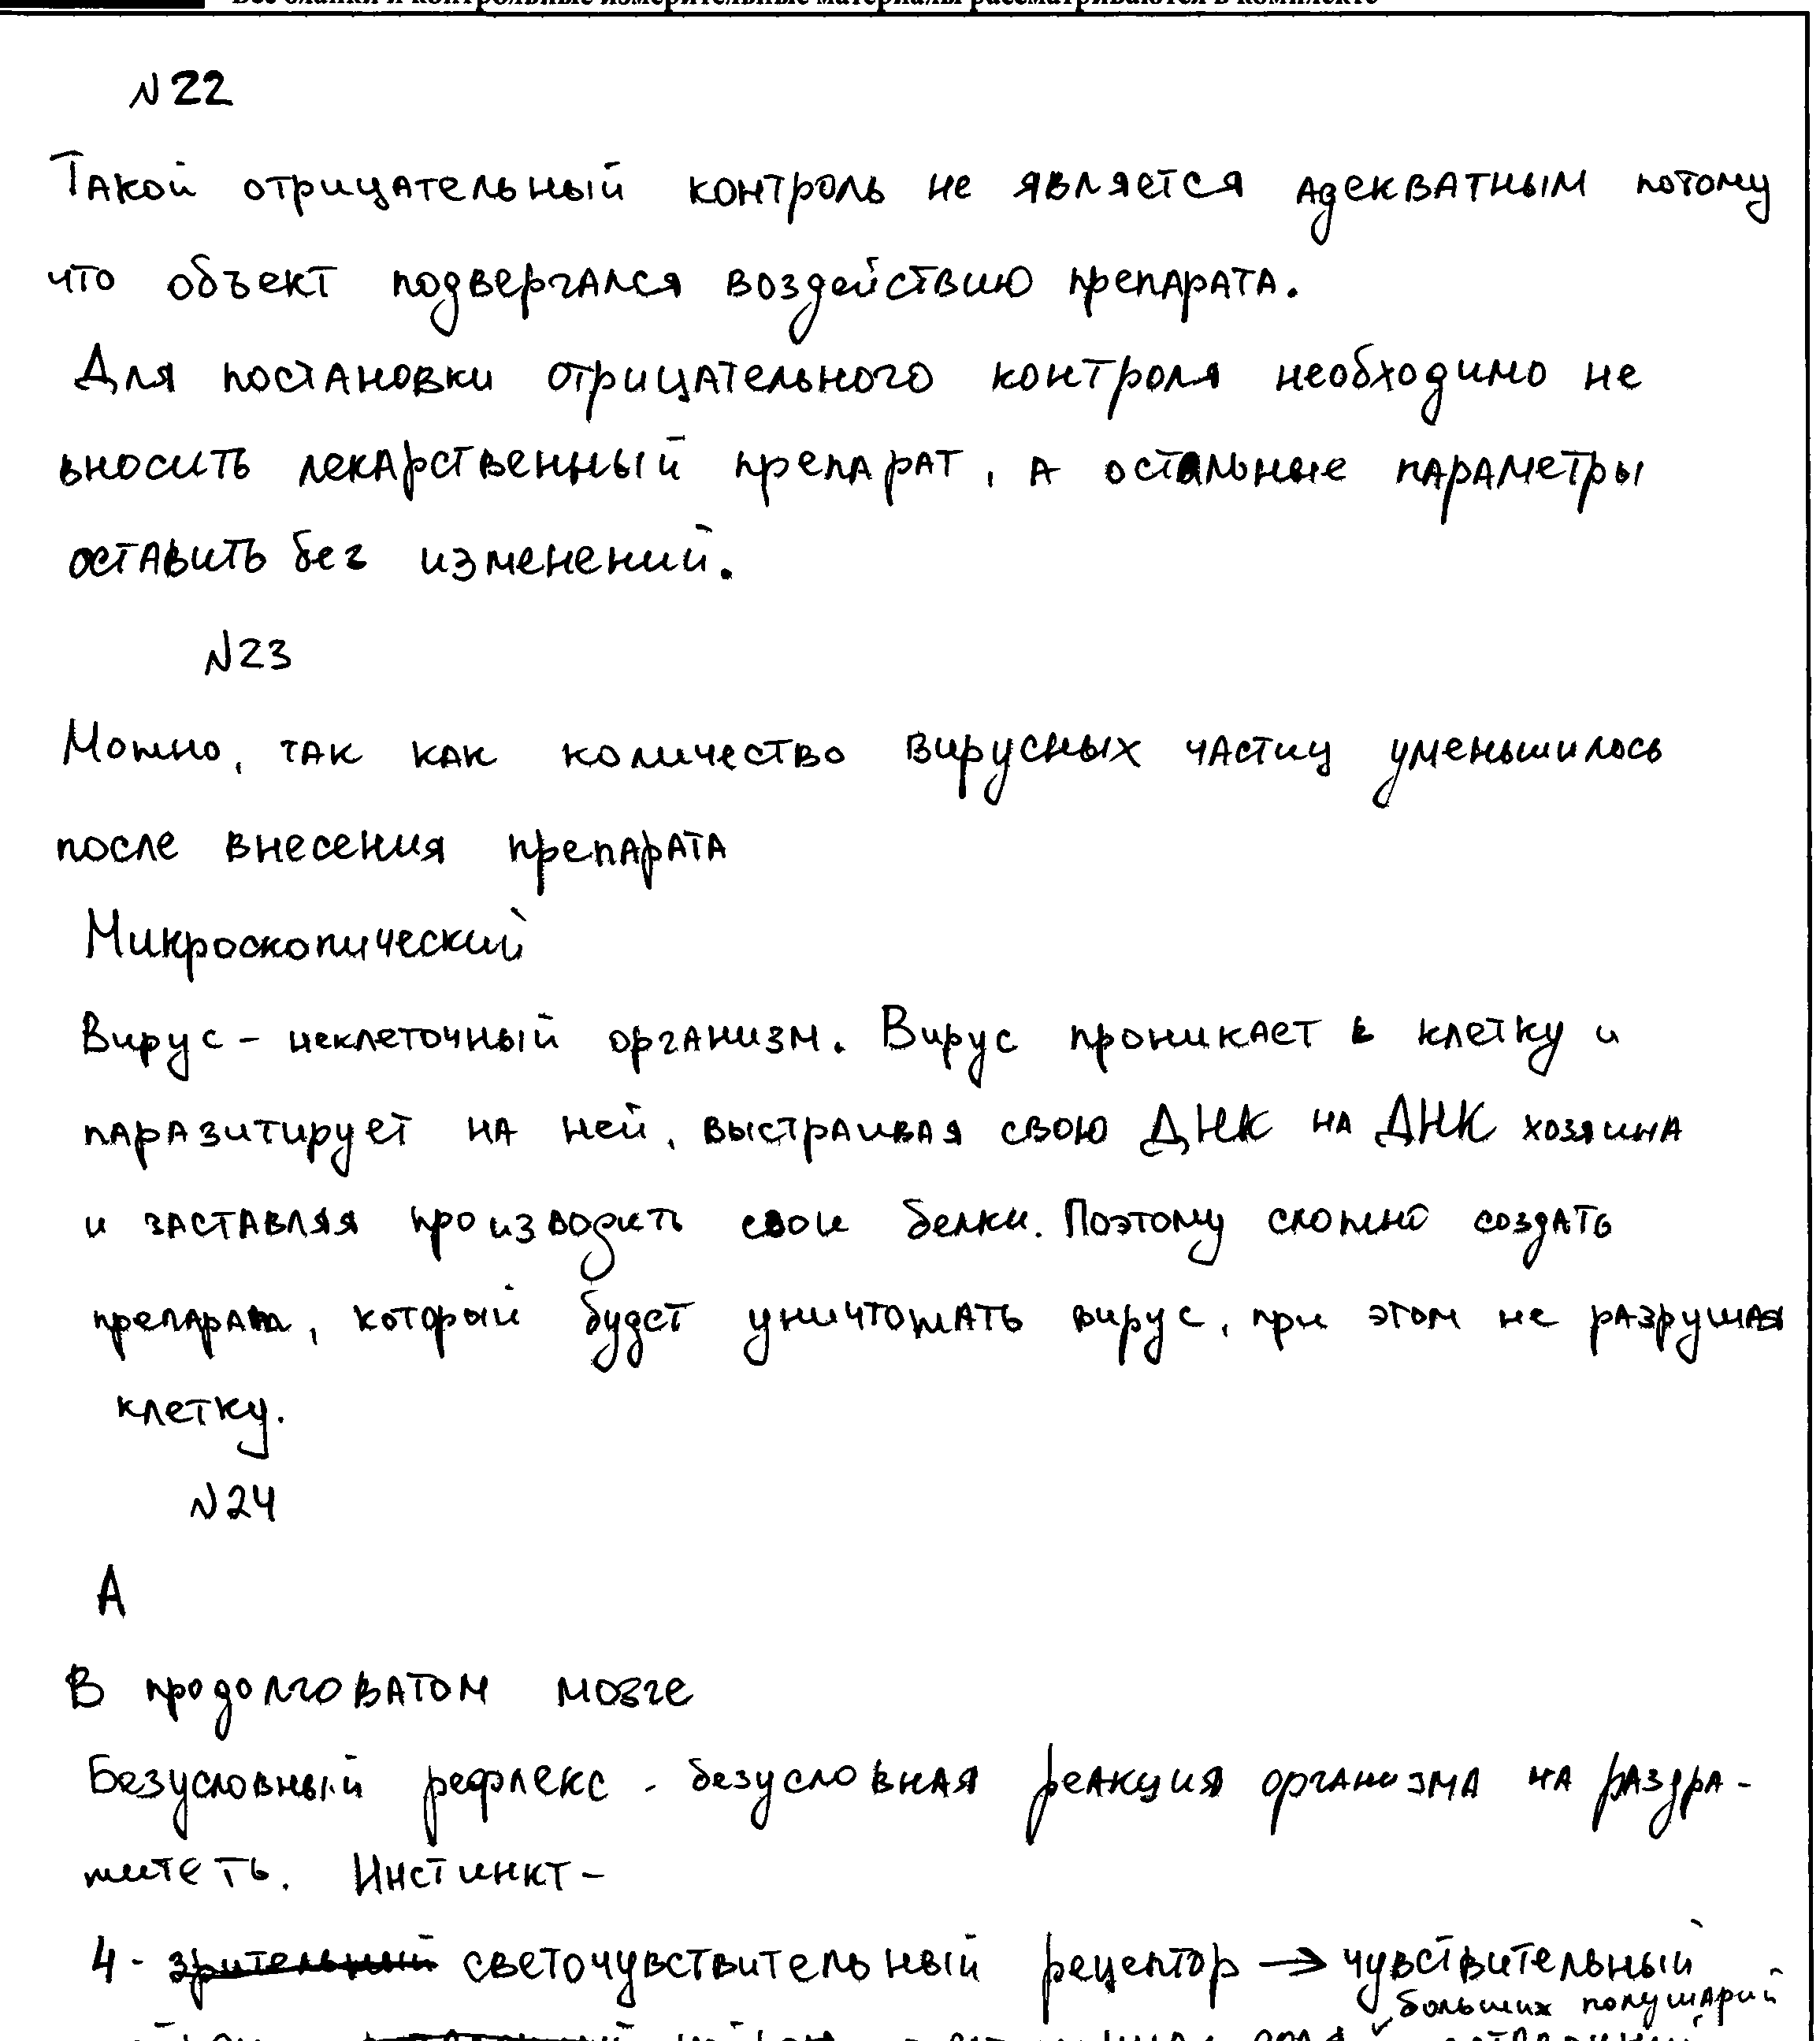 Все бланки и контрольные измерительные материалы рассматриваются в комплекте
N22
Такой отрицательный контроль не является адекватным потому
что объект подвергался воздействию препарата.
Для постановки отрицательного контроля необходимо не
вносить лекарственный препарат, а остальные параметры
оставить без изменений.
N23
Можно, так как количество вирусных частиц уменьшилось
после внесения препарата
Микроскопический
Вирус - неклеточный организм. Вирус проникает в клетку и
паразитирует на ней, выстраивая свою ДНК на ДНК хозяина
и заставляя производить свои белки. Поэтому сложно создать
препарат, который будет уничтожать вирус, при этом не разрушая
клетку.
N24
А
В продолговатом мозге
Безусловный рефлекс - безусловная реакция организма на раздра-
житеть. Инстинкт-
4 - зрительный светочувствительный рецептор → чувствительный
больших полушарий